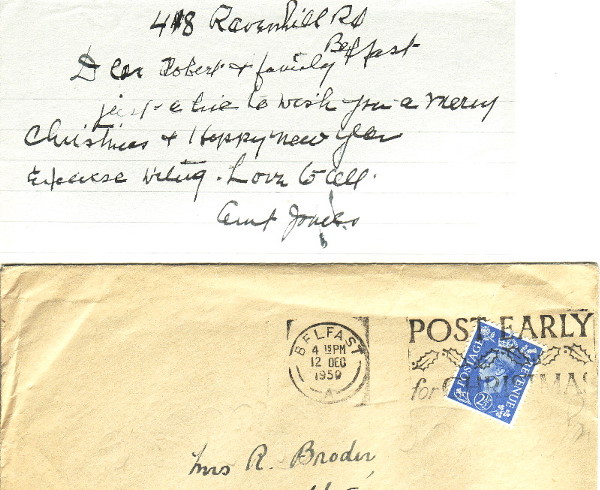 418 Ravenhill Rd
Belfast
Dear Robert & family
just a line to wish you a merry
Christmas & Happy new year
Experse writing. Love to all.
Aunt
BELFAST
4 15 PM
12 DEC
1950
A
POST EARLY
for CHRISTMAS
POSTAGE REVENUE
2½D
Mrs R. Broder